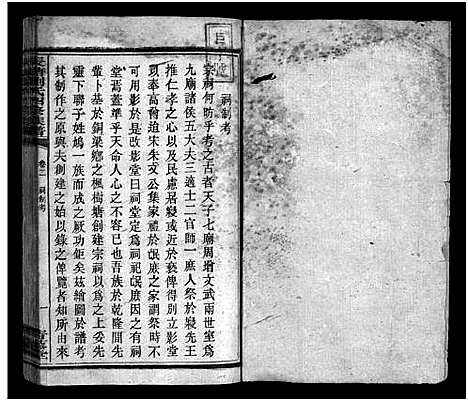 祠制考
宗祠何昉乎考之古者天子七廟周增文武兩世室為
九廟諸侯五大夫三適士二官師一庶人祭於寢先王
推仁孝之心以及民慮居寢或近於褻俾得別立影堂
以奉高曾迨宋朱文公集家禮於氓庶之家謂祭時不
可用影於是改影堂曰祠堂定為祠祀氓庶因之有祠
堂焉蓋準乎天命人心之不容已也吾族於乾隆間先
輩卜基於銅梁鄉之楓樹塘創建宗祠以為之上妥先
靈下聯子姓鳩一族而成之厥功鉅矣茲繪圖於譜考
其制作之原與夫創建之始以錄之俾覽者知所由來
卷二 祠制考
一